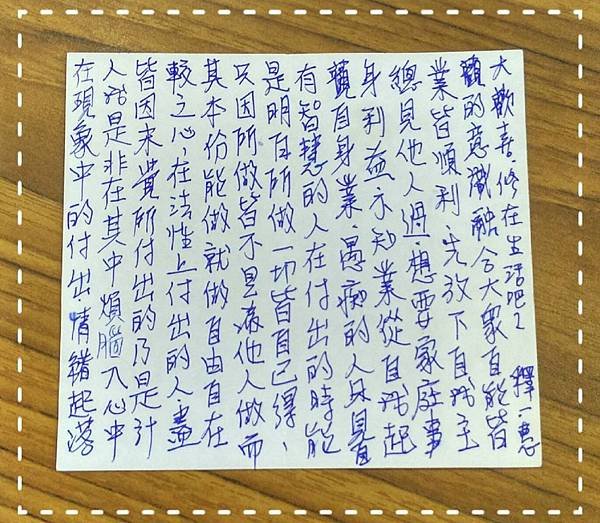 在現象中的付出情緒起落
人我是非在其中煩腦入心中
皆因未覺所付出的乃是計
較之心,在法性上付出的人,盡
其本份能做就做自由自在
只因所做皆不是為他人做而
是明白所做一切皆自己得、
有智慧的人在付出的時能
觀自身業.愚痴的人只見自
身利益不知業從自我起
總見他人過.想要家庭事
業皆順利.先放下自我主
觀的意識融合大眾自能皆
大歡喜修在生活吧!
釋一惠